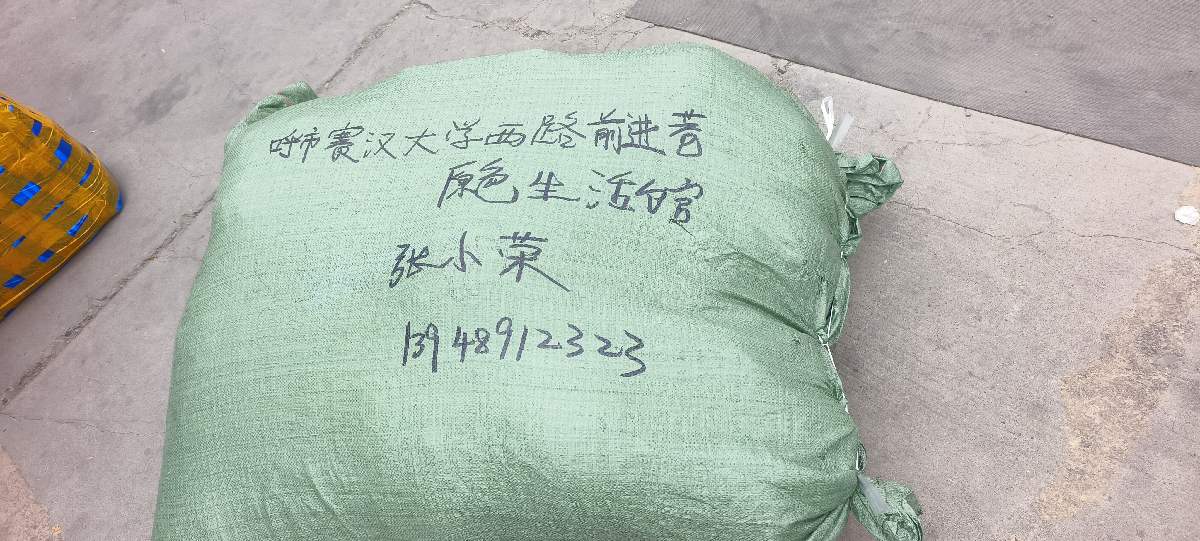 呼市赛汉大学西路前进巷
原色生活馆
张小荣
13948912323